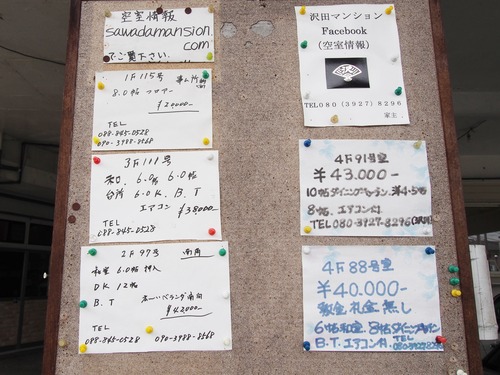 空室情報
sawadamansion.
com
でご覧下さい.
1F 115号
8.0帖 フロアー
¥20000-
TEL
088-845-0528
090-3988-8568
3F 111号
和, 6.0帖 6.0帖
台所 6.0K、B.T
エアコン ¥38000-
TEL
088-845-0528
2F 97号 南角
和室 6.0帖 押入
DK 12帖
B.T ベランダ南向
¥42000-
TEL
088-845-0528 090-3988-8568
沢田マンション
Facebook
(空室情報)
TEL080(3927)8296
家主
4F91号室
¥43.000-
10帖ダイニングキッチン、洋4.5帖
8帖、エアコン付.
TEL080-3927-8296
4F88号室
¥40.000-
敷金、礼金無し
6帖和室、8帖ダイニングキッチン
B.T.エアコン付. TEL
080-3927-8296